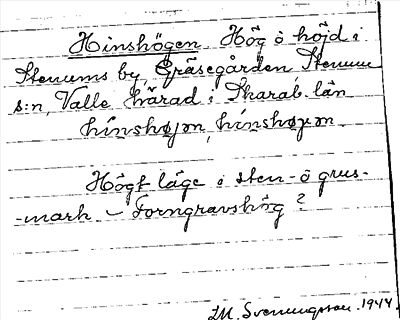 Hinshögen Hög o höjd i
Stenums by, Gräsegården Stenum
s:n, Valle härad i Skarab. län
hinshøjən, hinshøgən
Högt läge i sten- o grus-
-mark – Forngravshög?
M. Svenungsson. 1944.